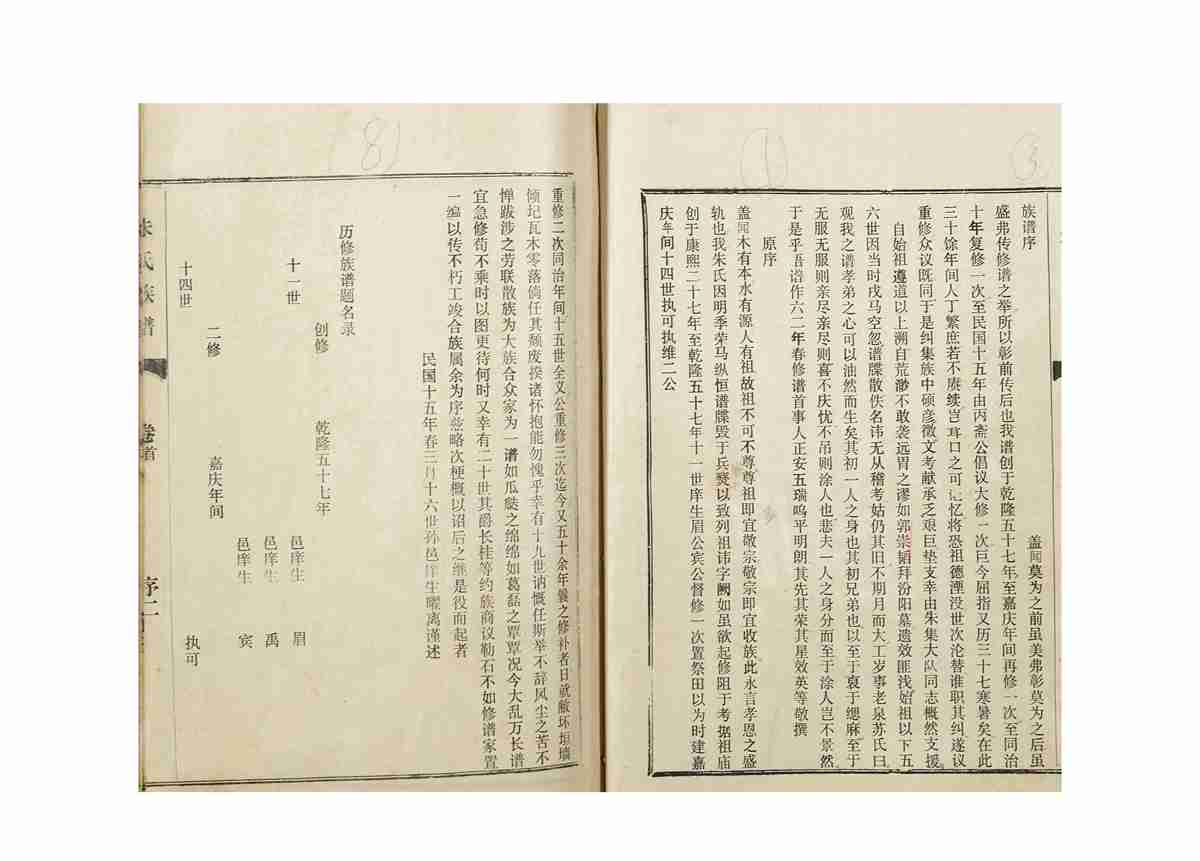 族谱序
盖闻莫为之前虽美弗彰莫为之后虽
盛弗传修谱之举所以彰前传后也我谱创于乾隆五十七年至嘉庆年间再修一次至同治
十年复修一次至民国十五年由丙斋公倡议大修一次巨今屈指又历三十七寒暑矣在此
三十馀年间人丁繁庶若不赓续岂耳口之可记忆将恐祖德湮没世次沦替谁职其纠遂议
重修众议既同于是纠集族中硕彦徵文考献承乏艰巨垫支幸由朱集大队同志概然支援
自始祖遵道以上溯自荒渺不敢袭远胄之谬如郭崇韬拜汾阳墓遗效匪浅始祖以下五
六世因当时戍马空忽谱牒散佚名讳无从稽考姑仍其旧不期月而大工岁事老泉苏氏曰
观我之谱孝弟之心可以油然而生矣其初一人之身也其初兄弟也以至于衰于缌麻至于
无服无服则亲尽亲尽则喜不庆忧不吊则涂人也悲夫一人之身分而至于涂人岂不景然
于是乎吾谱作六二年春修谱首事人正安五瑞鸣平明朗其先其荣其星效英等敬撰
原序
盖闻木有本水有源人有祖故祖不可不尊尊祖即宜敬宗敬宗即宜收族此永言孝恩之盛
轨也我朱氏因明季荣马纵恒谱牒毁于兵燹以致列祖讳字阙如虽欲起修阻于考据祖庙
创于康熙二十七年至乾隆五十七年十一世庠生眉公宾公督修一次置祭田以为时建嘉
庆年间十四世执可执维二公
重修二次同治年间十五世全义公重修三次迄今又五十余年曩之修补者日就敝坏垣墙
倾圮瓦木零落倘任其颓废揆诸怀抱能勿愧乎幸有十九世讷慨任斯举不辞风尘之苦不
惮跋涉之劳联散族为大族合众家为一谱如瓜瓞之绵绵如葛磊之覃覃况今大乱万长谱
宜急修苟不乘时以图更待何时又幸有二十世其爵长桂等约族商议勒石不如修谱家置
一编以传不朽工竣合族属余为序兹略次梗概以诏后之继是役而起者
民国十五年春三月十六世孙邑庠生曜离谨述
历修族谱题名录
创修 乾隆五十七年
十一世 邑庠生 眉
邑庠生 禹
邑庠生 宾
二修 嘉庆年间
十四世 执可
朱氏族谱 卷首 序二
(8)
(1)